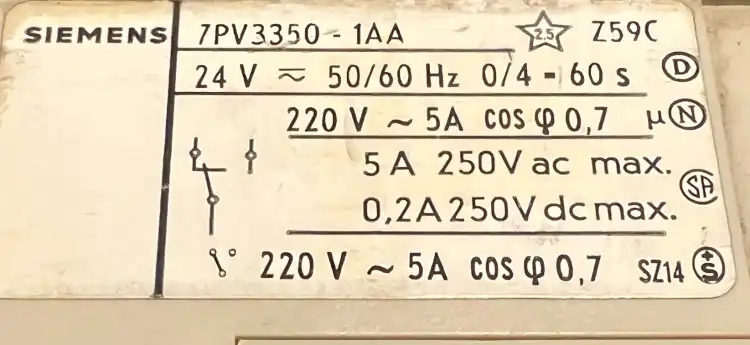 SIEMENS 7PV3350 - 1AA 2.5 Z59C
24 V ≂ 50/60 Hz 0/4 - 60 s D
220 V ~ 5A cos φ 0,7 µ N
5 A 250V ac max.
SA
0,2A 250V dc max.
220 V ~ 5A cos φ 0,7 SZ14 +S